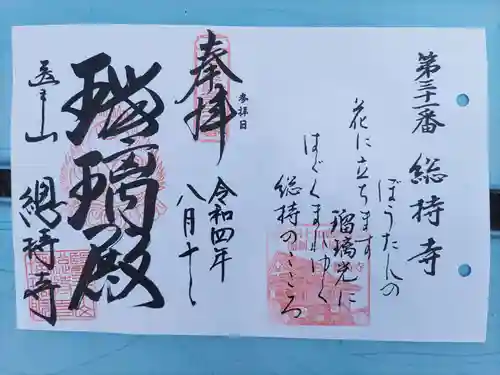 第三十一番 総持寺
ぼうたんの
花に立ちます
瑠璃光に
はぐくまれゆく
総持のこころ
奉拝
参拝日
令和四年
八月十一
瑠璃殿
山
總持寺